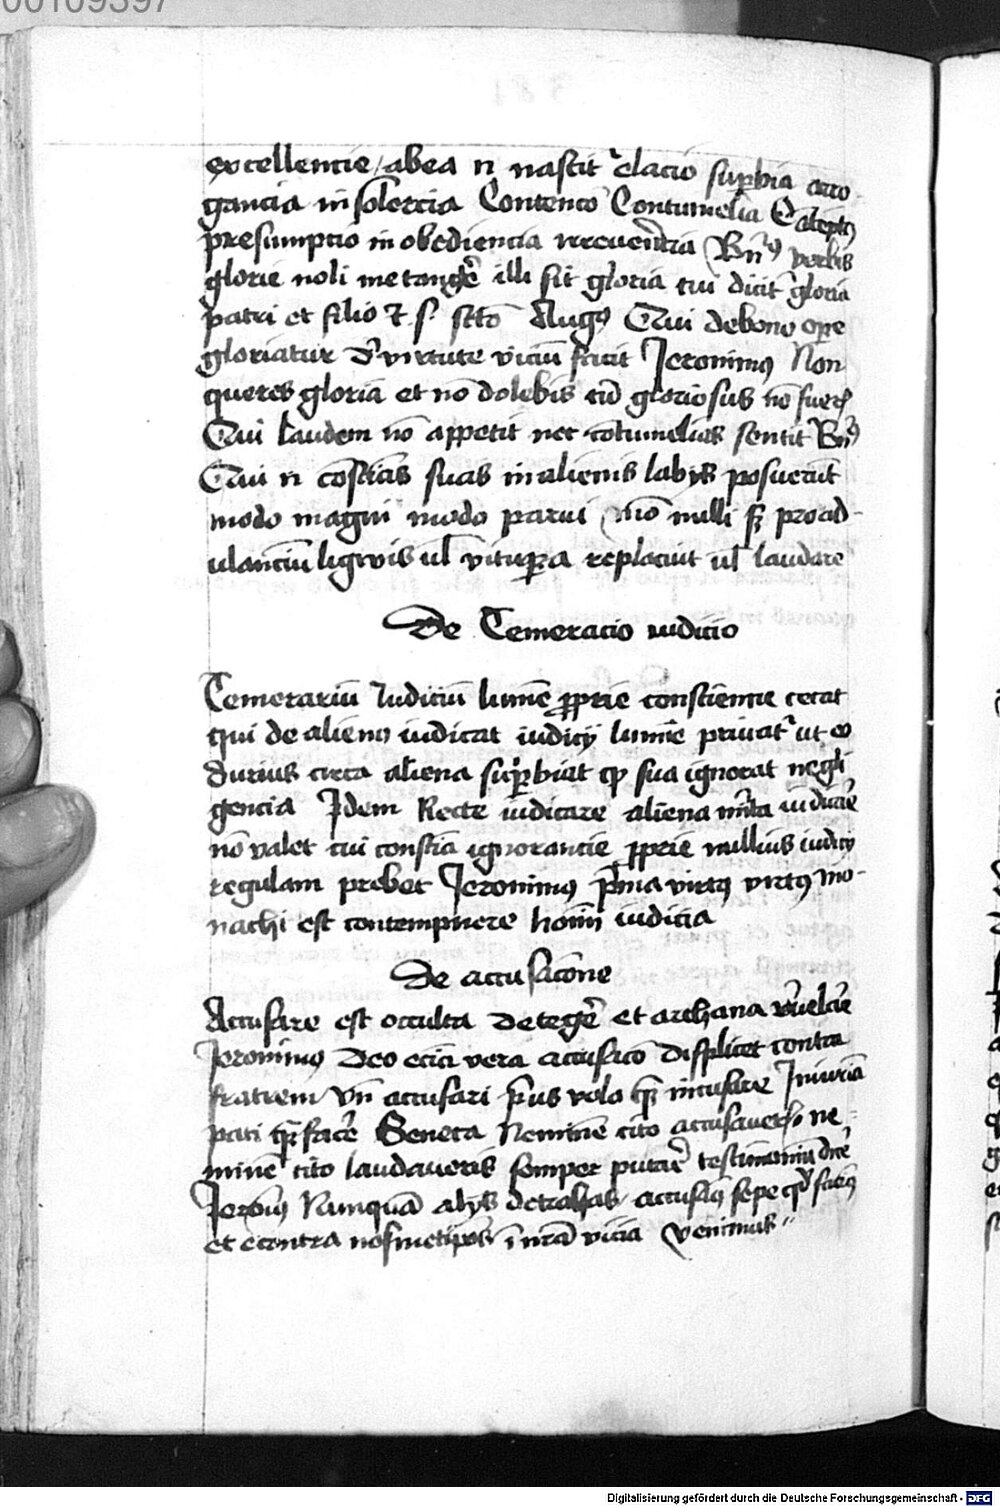 00109397
excellencie / ab ea n̄ nascit᷑ elacio suꝑbia arro-
gancia insolercia Contenco Contumelia
presumptio inobediencia irreuerētia Bn̄ꝰ verbis
glorie noli me tangē illi sit gloria cui dicit᷑ gloria
patri et filio et s᷑ scto Augꝯ Qui de bono oꝑe
gloriatur d᷑ virtute viciū facit Jeronimꝯ Non
queres gloriā et nō dolebis cū gloriosus nō fueꝭ
Qui laudem nō appetit nec cōtumeliās sentit Bn̄ꝰ
Qui n̄ cōsciās suas in alienis labijs posuerūt
modo magni modo parui mō nulli ẜꝫ pro ad-
ulanciū ligwis ul̄ vituꝑa replacuit ul̄ laudare
De Temeracio iudicio
Temerariū Judiciū lumē ꝓprie consciencie cecat
qui de alieno iudicat iudicij lumīe priuat᷑ ut eo
durius circa aliena suꝑbiat qꝫ sua ignorat negli
gencia Jdem Recte iudicare aliena m̄ita
nō valet cui consciā ignorancie ꝓprie nullius iudicij
regulam prebet Jeronimꝯ p̄ma virtꝯ virtꝯ mo-
nachi est contempnere homī iudicia
De accusacōne
Accusare est occulta detegē et archana
Jeronimꝯ Deo eciā vera accusacō displicet contra
fratrem Vn̄ accusari p̄us volo qꝫ incusare Jniuriā
pati qꝫ facē Seneca Neminē cito accusaueꝭ ne-
minē cito laudaueris semper putaē testimoniū dicē
Jeronꝯ Nunquā alijs detrahas accusāꝯ sepe qd̄ facimꝯ
et econtra nosmetipos ī nrā vicia venimus
Digitalisierung gefördert durch die Deutsche Forschungsgemeinschaft - DFG